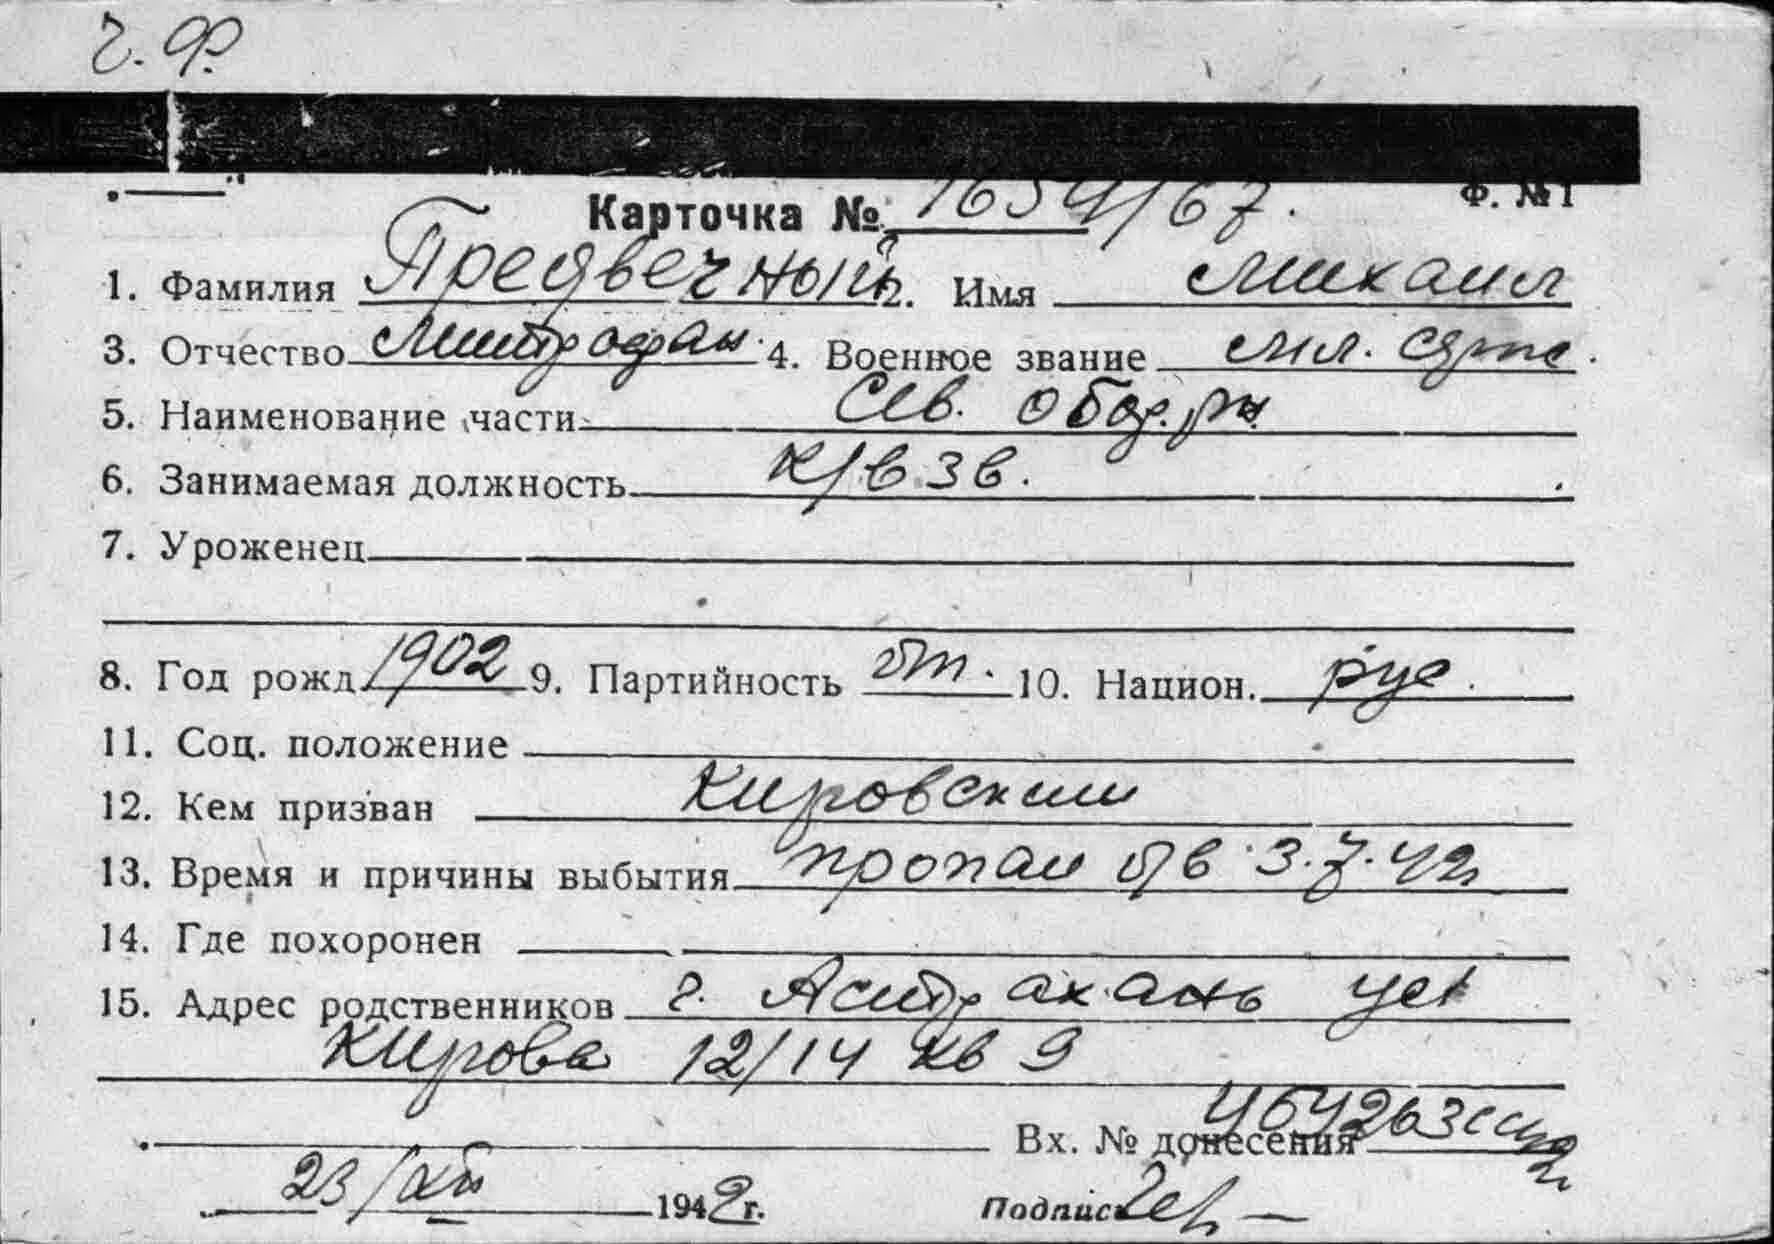 Ч.Ф.
Ф. №1
Карточка № 1654/67.
1. Фамилия Предвечный. Имя Михаил
3. Отчество Митрофан. 4. Военное звание мл. серж.
5. Наименование части Сев. обор. рн
6. Занимаемая должность к/взв.
7. Уроженец
8. Год рожд. 1902 9. Партийность б/п. 10. Национ. рус.
11. Соц. положение
12. Кем призван Кировским
13. Время и причины выбытия пропал б/в 3.7.42г
14. Где похоронен
15. Адрес родственников г. Астрахань ул
Кирова 12/14 кв 9
Вх. № донесения
23/XII 1942 г. Подпись